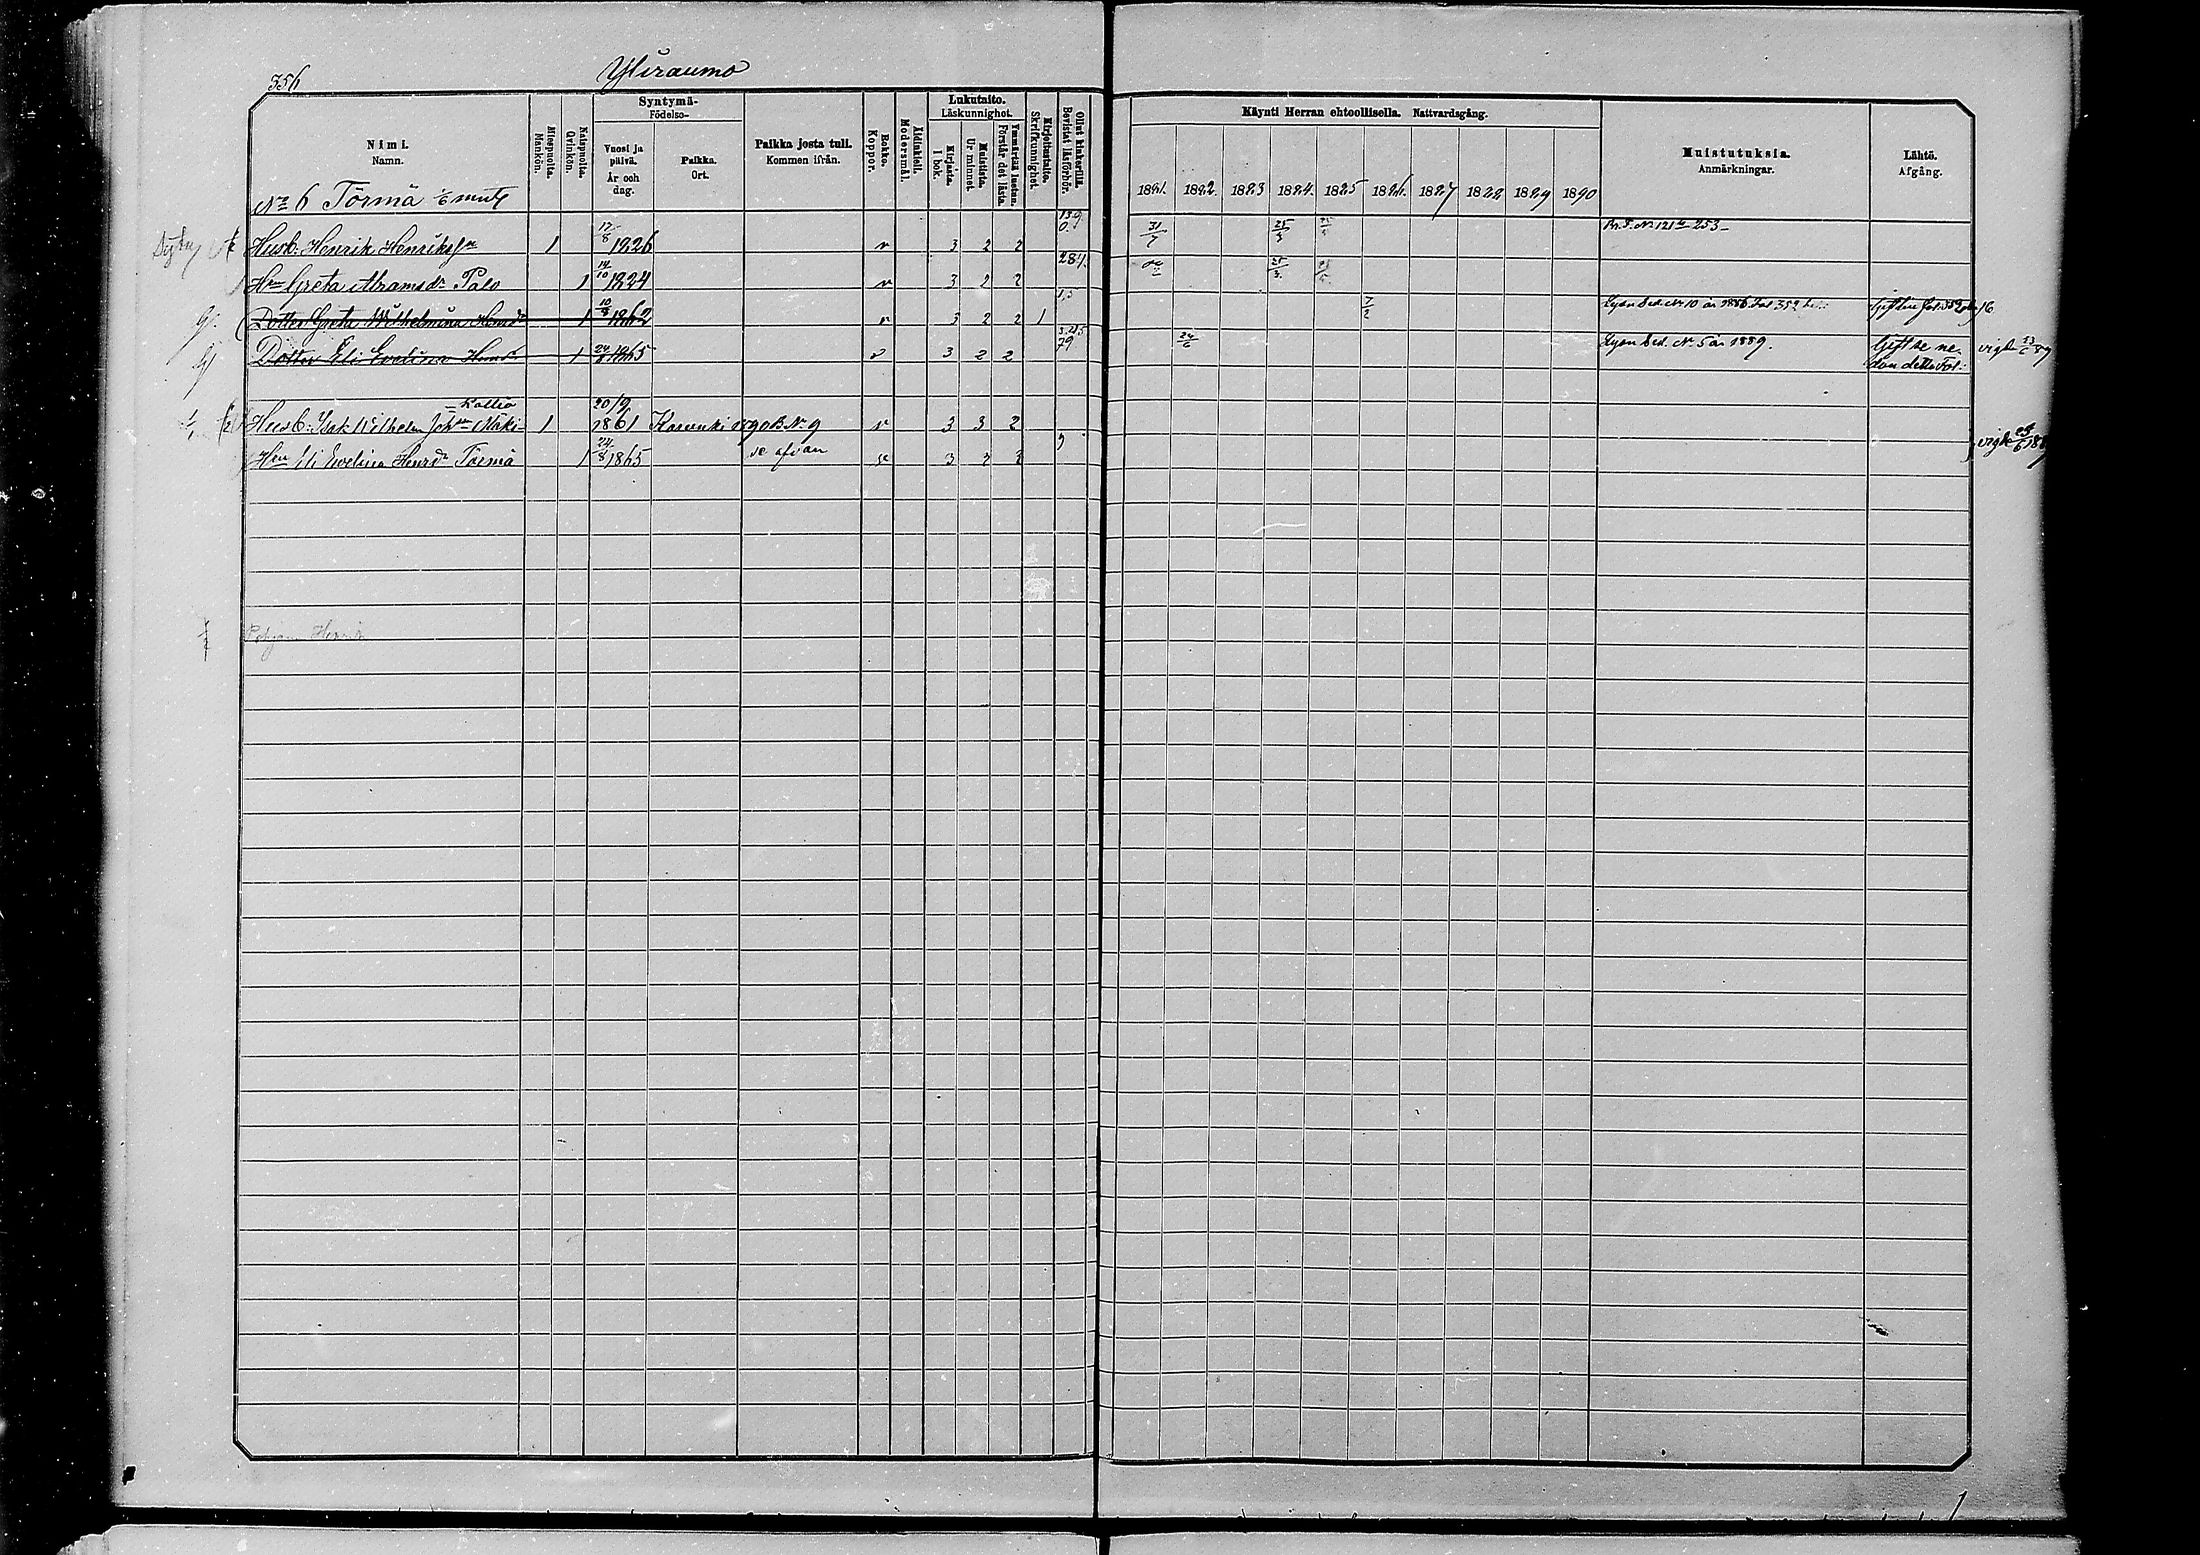 356
Yliraumo
Nimi.
Namn.
Miespuolta.
Mankön.
Naispuolta.
Qvinkön.
Syntymä-
Födelse-
Vuosi ja
päivä.
År och
dag.
Paikka.
Ort.
Paikka josta tuli.
Kommen ifrån.
Rokko.
Koppor.
Äidinkieli.
Modersmål.
Lukutaito.
Läskunnighet.
Kirjasta.
I bok.
Muistista.
Ur minnet
Ymmärtää luetun.
Förstår det lästa
Kirjoitustaito.
Skrifkunnighet.
Ollut kinkerillä.
Bevistat läsförhör.
Käynti Herran ehtoollisella. Nattvardsgång.
1881. 1882. 1883 1884. 1885 1886. 1887 1888 1889 1890
Muistutuksia.
Anmärkningar.
Lähtö.
Afgång.
No 6 Törmä 1/6 mntl
Husb. Henrik Henrikssn 1 17/8 1826 v 3 2 2 31/7 25/3 Pr. F. No 121 253
Hn Greta Abramsdr Palo 1 14/10 1824 v 3 2 2 284. 25/3
Dotter Greta Wilhelmina Henrdr 1 10/8 1862 v 3 2 2 1 1,5 7/2 Lysn Sed. No 10 år 1886 Fol 352
Dotter Eli Evelina Henrdr 1 24/8 1865 v 3 2 2 79 24/6 Lysn Sed. No 5 år 1889. Gift se ne-
dan detta Fol: vigde 23/6 89
Kallio
Husb: Isak Wilhelm Johsn Mäki- 1 20/9 1861 Karunki 1890 B No 9 v 3 3 2
Hn Eli Evelina Henrdr Törmä 1 24/8 1865 se ofvan v 3 2 2 9 vigde 23/6 1889
Pohjan Henrik